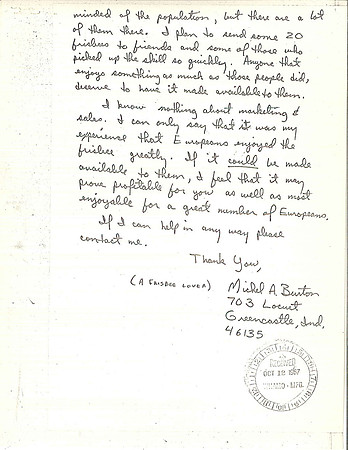 minded of the population, but there are a lot
of them there. I plan to send some 20
frisbees to friends and some of those who
picked up the skill so quickly. Anyone that
enjoys something as much as those people did,
deserve to have it made available to them.
I know nothing about marketing &
sales. I can only say that it was my
experience that Europeans enjoyed the
frisbee greatly. If it could be made
available to them, I feel that it may
prove profitable for you as well as most
enjoyable for a great number of Europeans.
If I can help in any way please
contact me.
Thank You,
(A FRISBEE LOVER) Michel A. Burton
703 Locust
Greencastle, Ind.
46135
RECEIVED
OCT 12 1967
WHAM-O MFG.